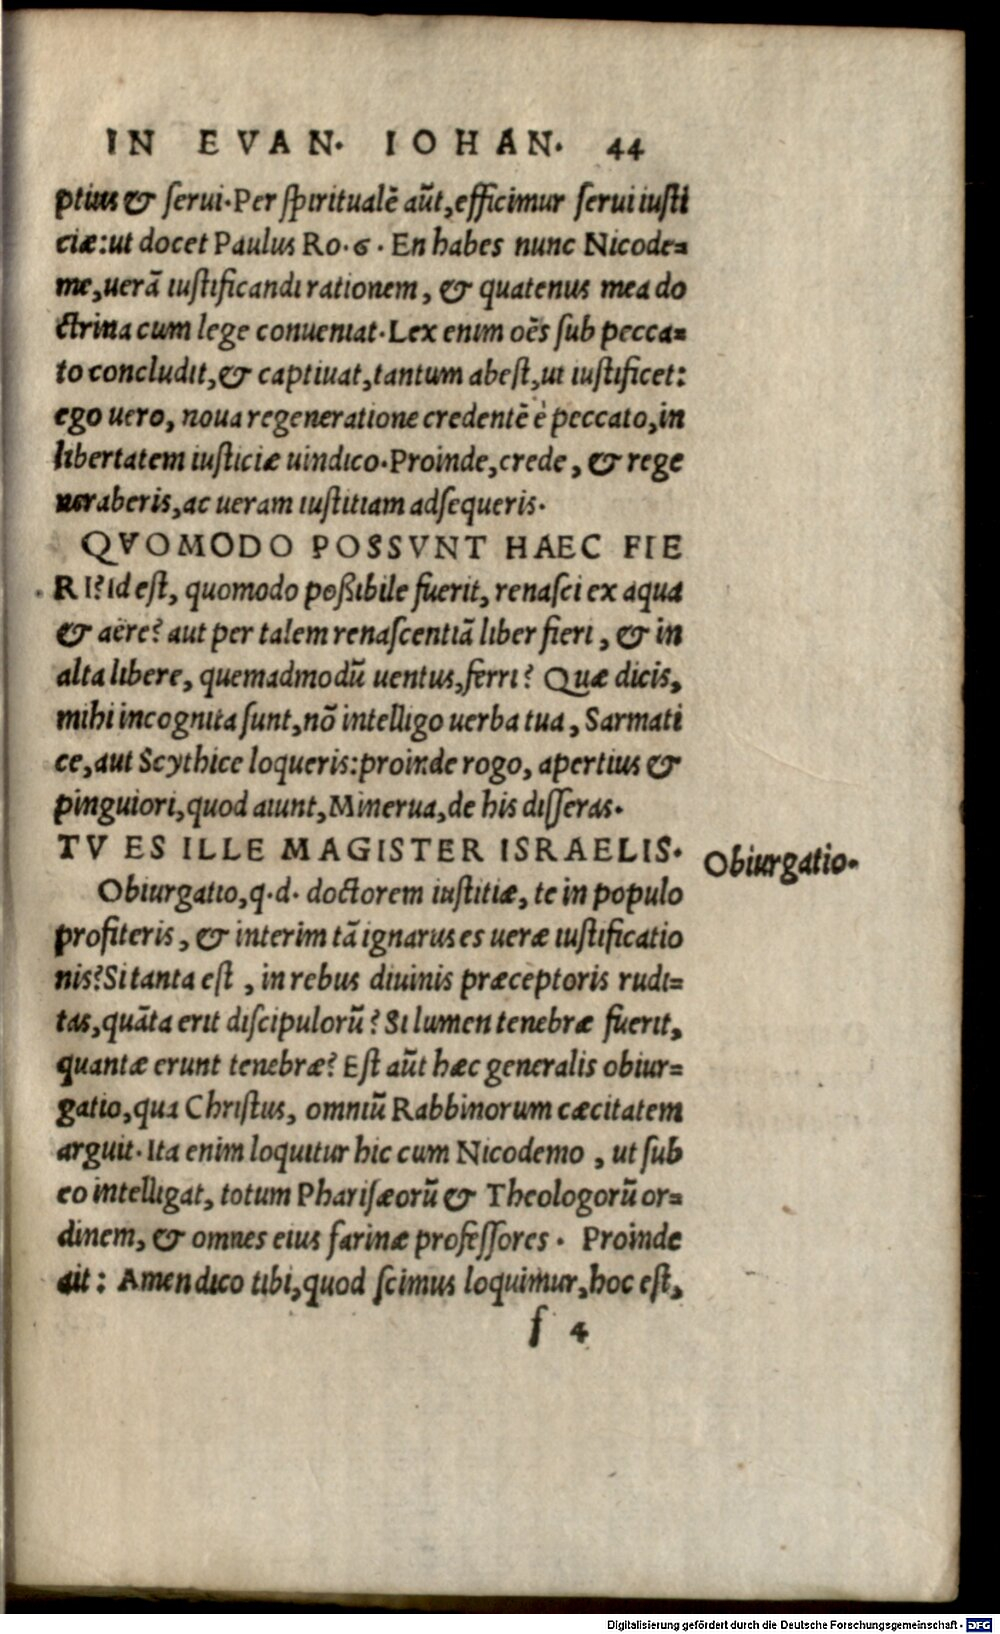 IN EVAN. IOHAN. 44
ptius & ſerui. Per ſpiritualẽ aũt, efficimur ſerui iuſti
ciæ: ut docet Paulus Ro. 6. En habes nunc Nicode=
me, uerã iuſtificandi rationem, & quatenus mea do
ctrina cum lege conueniat. Lex enim oẽs ſub pecca=
to concludit, & captiuat, tantum abeſt, ut iuſtificet:
ego uero, noua regeneratione credentẽ è peccato, in
libertatem iuſticiæ uindico. Proinde, crede, & rege
neraberis, ac ueram iuſtitiam adſequeris.
QVOMODO POSSVNT HAEC FIE
RI? Id eſt, quomodo poßibile fuerit, renaſci ex aqua
& aëre? aut per talem renaſcentiã liber fieri, & in
alta libere, quemadmodũ uentus, ferri? Quæ dicis,
mihi incognita ſunt, nõ intelligo uerba tua, Sarmati
ce, aut Scythice loqueris: proinde rogo, apertius &
pinguiori, quod aiunt, Minerua, de his diſſeras.
TV ES ILLE MAGISTER ISRAELIS.
Obiurgatio.
Obiurgatio, q. d. doctorem iuſtitiæ, te in populo
profiteris, & interim tã ignarus es ueræ iuſtificatio
nis? Si tanta eſt, in rebus diuinis præceptoris rudi=
tas, quãta erit diſcipulorũ? Si lumen tenebræ fuerit,
quantæ erunt tenebræ? Eſt aũt hæc generalis obiur=
gatio, qua Chriſtus, omniũ Rabbinorum cæcitatem
arguit. Ita enim loquitur hic cum Nicodemo, ut ſub
eo intelligat, totum Phariſæorũ & Theologorũ or=
dinem, & omnes eius farinæ profeſſores. Proinde
ait: Amen dico tibi, quod ſcimus loquimur, hoc eſt,
f 4
Digitalisierung gefördert durch die Deutsche Forschungsgemeinschaft - DFG